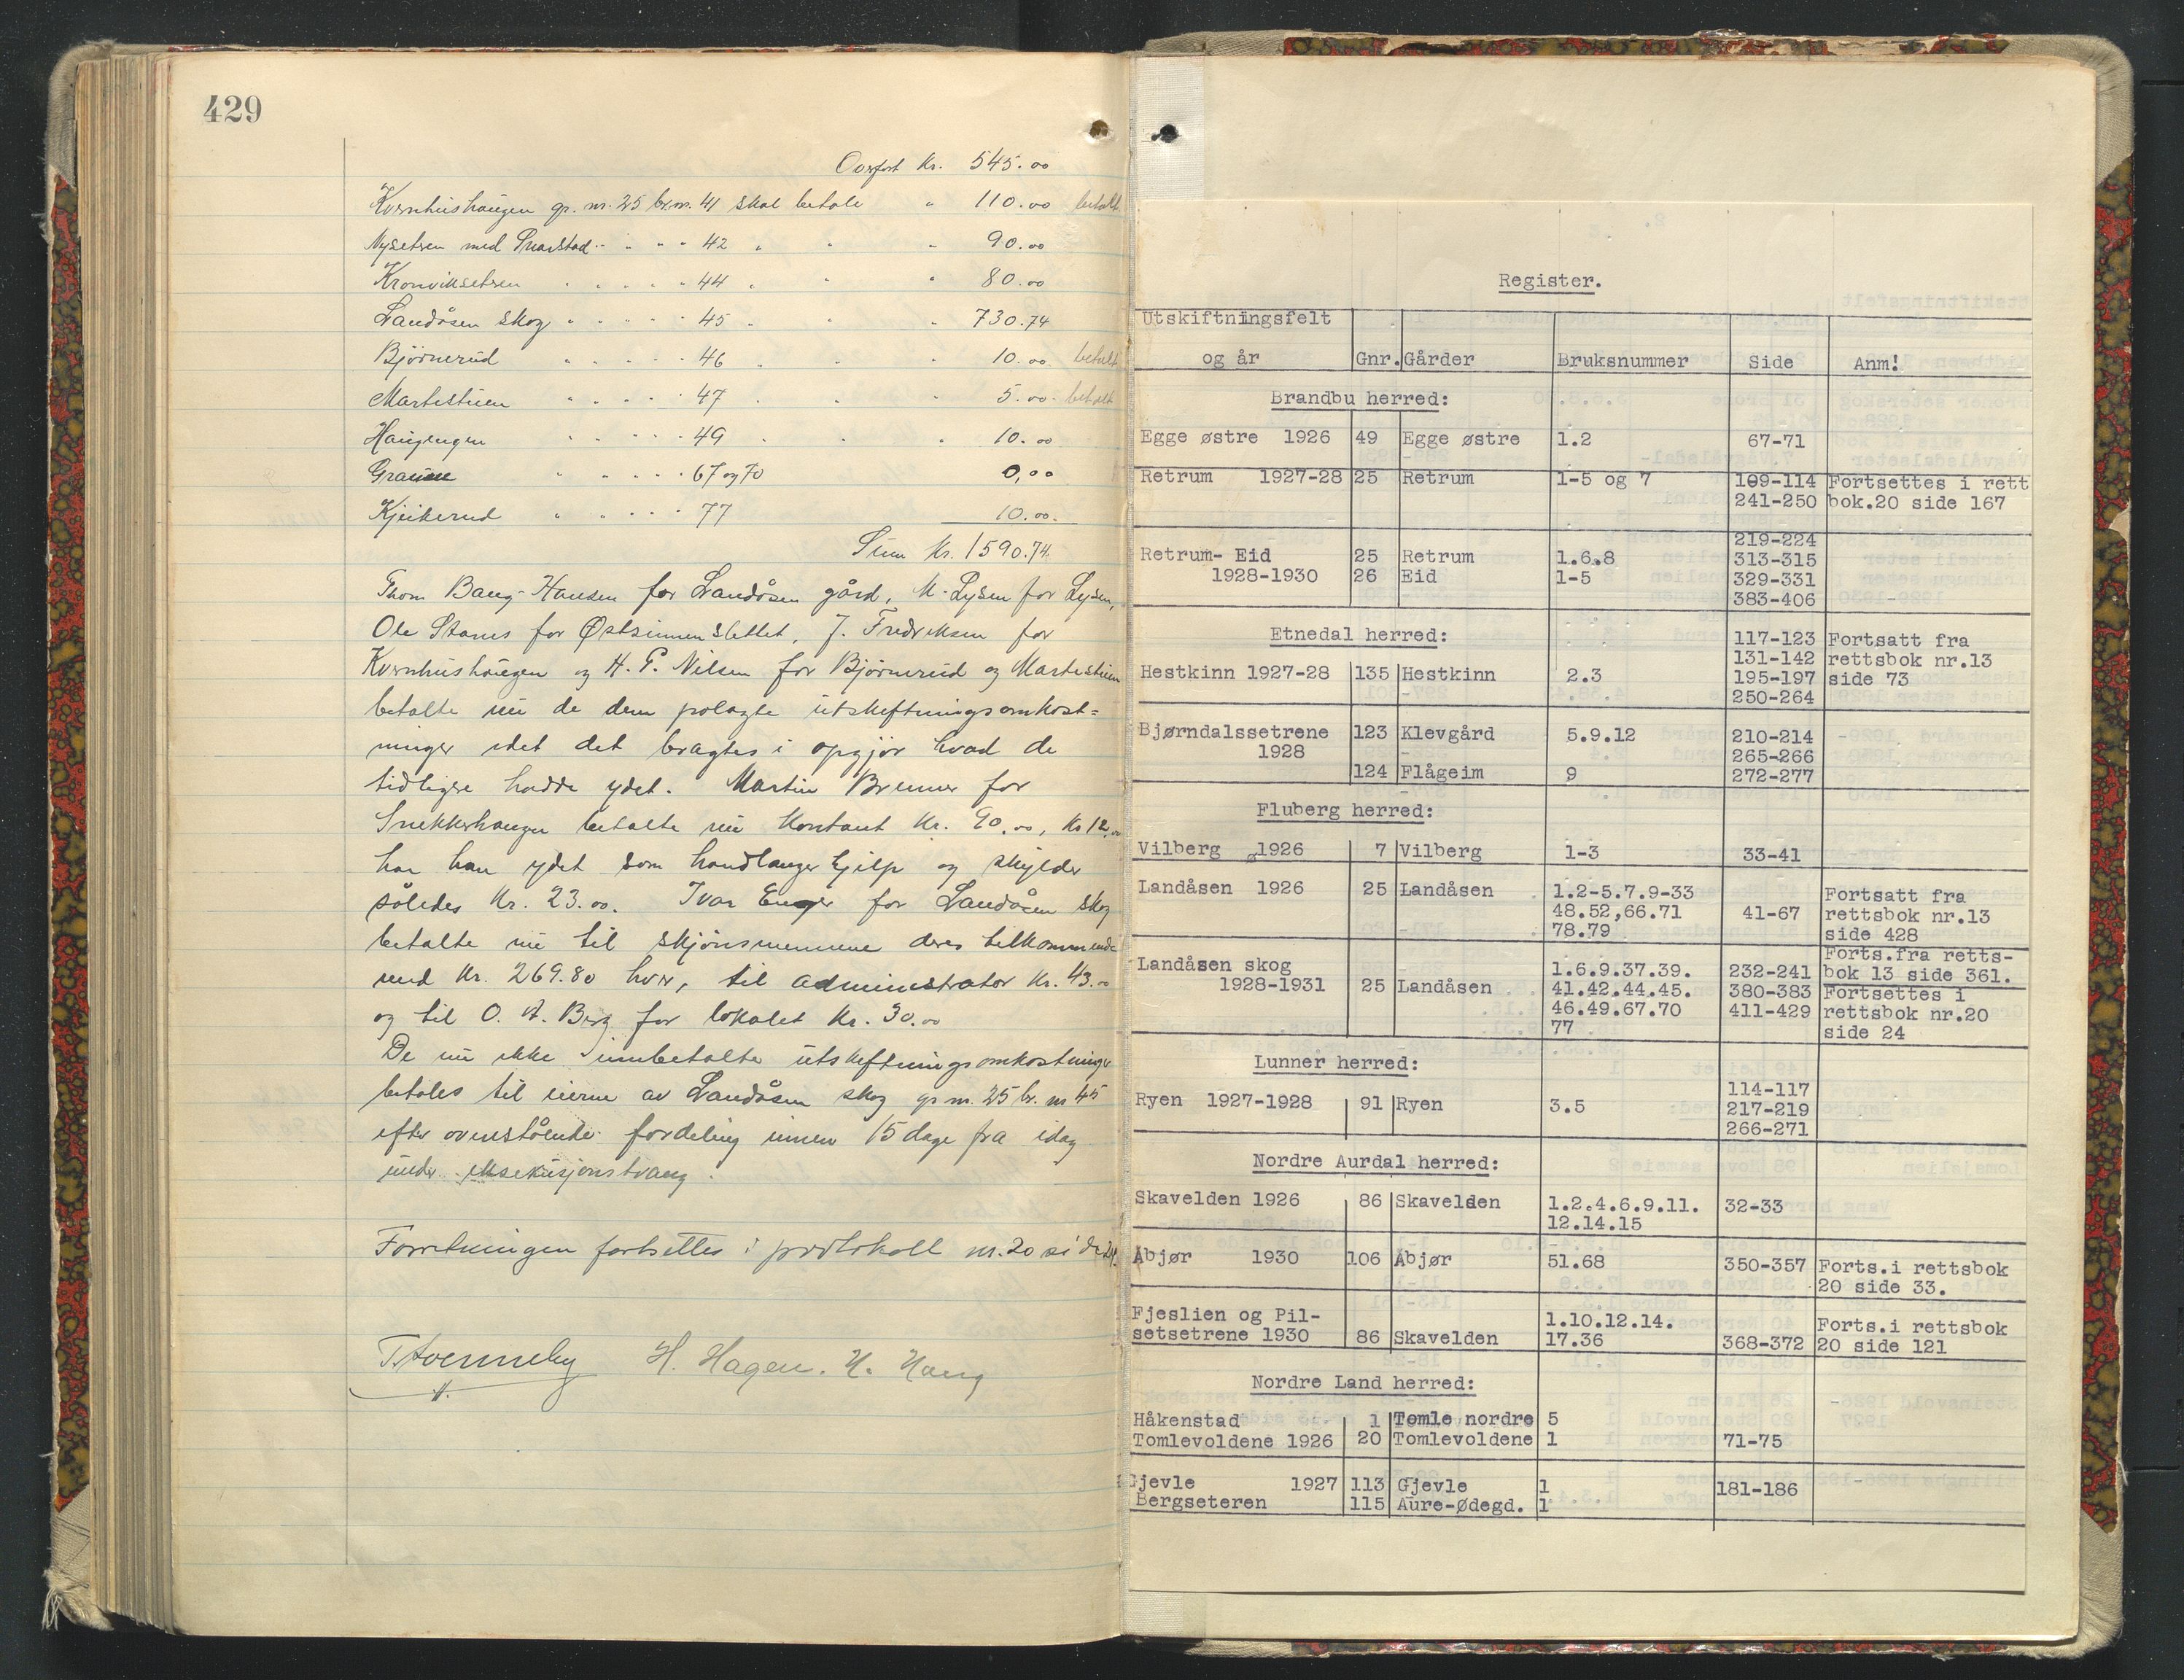 429
Overført Kr. 545.00
Kvernhushaugen gr. nr. 25 br.nr. 41 skal betale " 110.00 betalt
Nysetren med Snarstad " " " " 42 " " " 90.00
Kronviksetren " " " " " 44 " " " 80.00
Landåsen skog " " " " " 45 " " " 730.74
Bjørnerud " " " " " 46 " " " 10.00 betalt
Martestuen " " " " " 47 " " " 5.00 betalt
Haugengen " " " " " 49 " " " 10.00
" " " " " 67 og 70 0,00
Kjeikerud " " " " " 77 10.00
Sum Kr. 1590.74
Thom Bang-Hansen for Landåsen gård, M. Lysen for Lysen,
Ole Stenes for Østsinnenslettet, J. Fredriksen for
Kvernhushaugen og H. P. Nilsen for Bjørnerud og Martestuen
betalte nu de dem pålagte utskiftningsomkost=
ninger idet det bragtes i opgjør hvad de
tidligere hadde ydet. Martin Brenner for
Snekkerhaugen betalte nu kontant Kr. 90.00, Kr 12.00
har han ydet som handlanger hjelp og skylder
således Kr. 23.00. Ivar Enger for Landåsen skog
betalte nu til skjønsmennene deres tilkommende
med Kr. 269.80 hver, til administrator Kr. 43.00
og til O. A. Berg for lokalet Kr. 30.00
De nu ikke innbetalte utskiftningsomkostninger
betales til eierne av Landåsen skog gr nr. 25 br. nr 45
efter ovenstående fordeling innen 15 dage fra idag
under eksekusjonstvang.
Forretningen fortsettes i protokoll nr. 20 side 24.
T. Svenneby H. Hagen. H. Haug
Register.
Utskiftningsfelt
og år Gnr. Gårder Bruksnummer Side Anm!
Brandbu herred:
Egge østre 1926 49 Egge østre 1.2 67-71
Retrum 1927-28 25 Retrum 1-5 og 7 109-114 Fortsettes i rett
241-250 bok.20 side 167
219-224
Retrum- Eid 25 Retrum 1.6.8 313-315
1928-1930 26 Eid 1-5 329-331
383-406
Etnedal herred: 117-123 Fortsatt fra
131-142 rettsbok nr.13
Hestkinn 1927-28 135 Hestkinn 2.3 195-197 side 73
250-264
Bjørndalssetrene 123 Klevgård 5.9.12 210-214
1928 265-266
124 Flågeim 9 272-277
Fluberg herred:
Vilberg 1926 7 Vilberg 1-3 33-41
Landåsen 1926 25 Landåsen 1.2-5.7.9-33 Fortsatt fra
48.52,66.71 41-67 rettsbok nr.13
78.79 side 428
Forts.fra retts-
Landåsen skog 1.6.9.37.39. 232-241 bok 13 side 361.
1928-1931 25 Landåsen 41.42.44.45. 380-383 Fortsettes i
46.49.67.70 411-429 rettsbok nr.20
77 side 24
Lunner herred:
114-117
Ryen 1927-1928 91 Ryen 3.5 217-219
266-271
Nordre Aurdal herred:
Skavelden 1926 86 Skavelden 1.2.4.6.9.11. 32-33
12.14.15
Åbjør 1930 106 Åbjør 51.68 350-357 Forts.i rettsbok
20 side 33.
Fjeslien og Pil- 1.10.12.14. Forts.i rettsbok
setsetrene 1930 86 Skavelden 17.36 368-372 20 side 121
Nordre Land herred:
Håkenstad 1 Tomle nordre 5
Tomlevoldene 1926 20 Tomlevoldene 1 71-75
Gjevle 1927 113 Gjevle 1 181-186
Bergseteren 115 Aure-Ødegd. 1